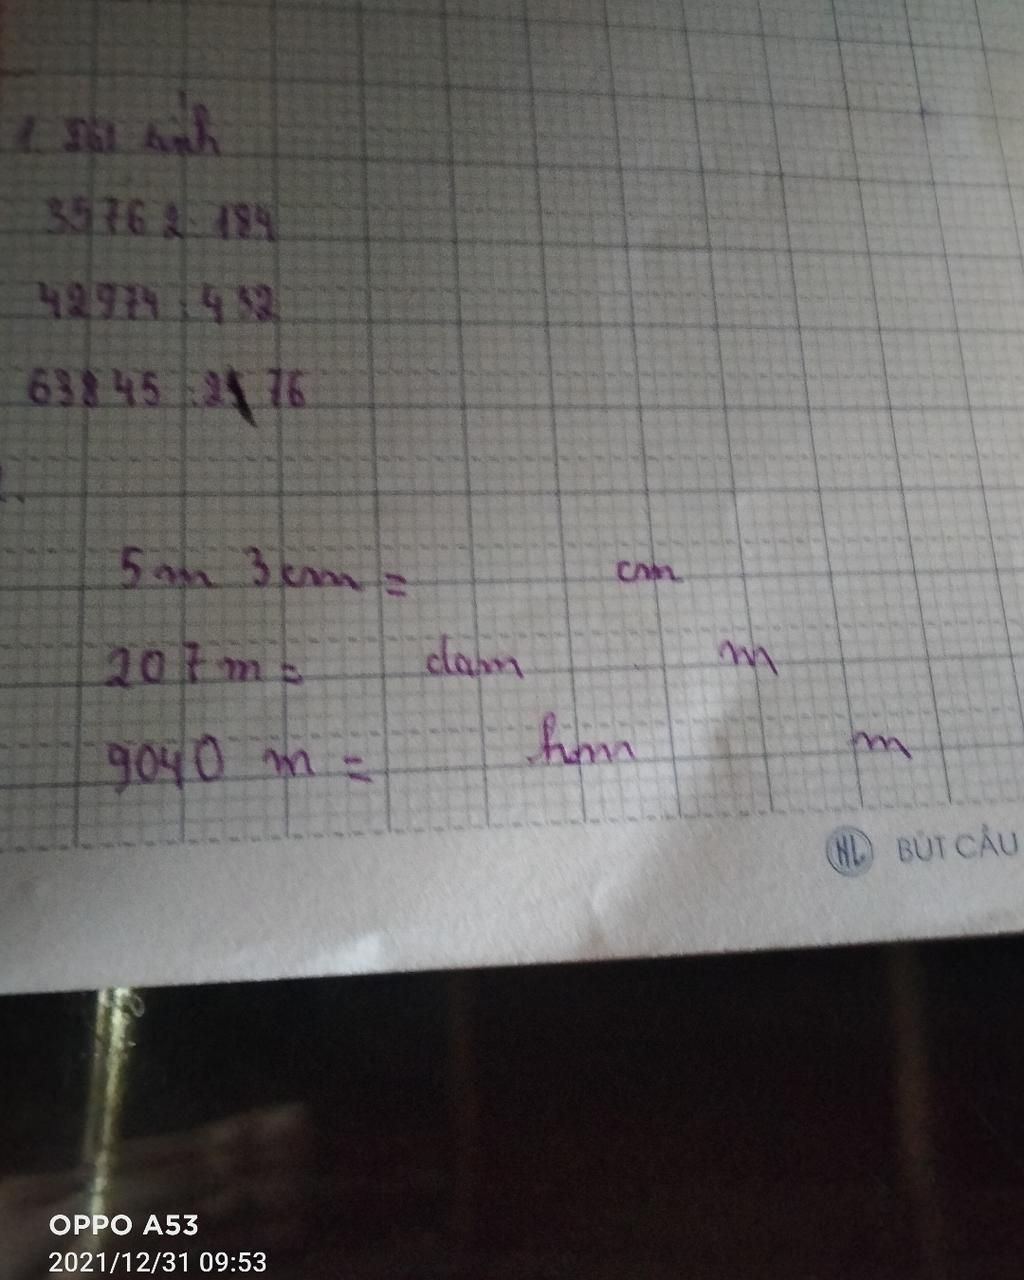 1. Đặt tính
35762 : 184
42974 : 432
63845 : 2 76
2.
5m 3cm = cm
207m = dam m
9040 m = hm m
HL BÚT CÂU
OPPO A53
2021/12/31 09:53